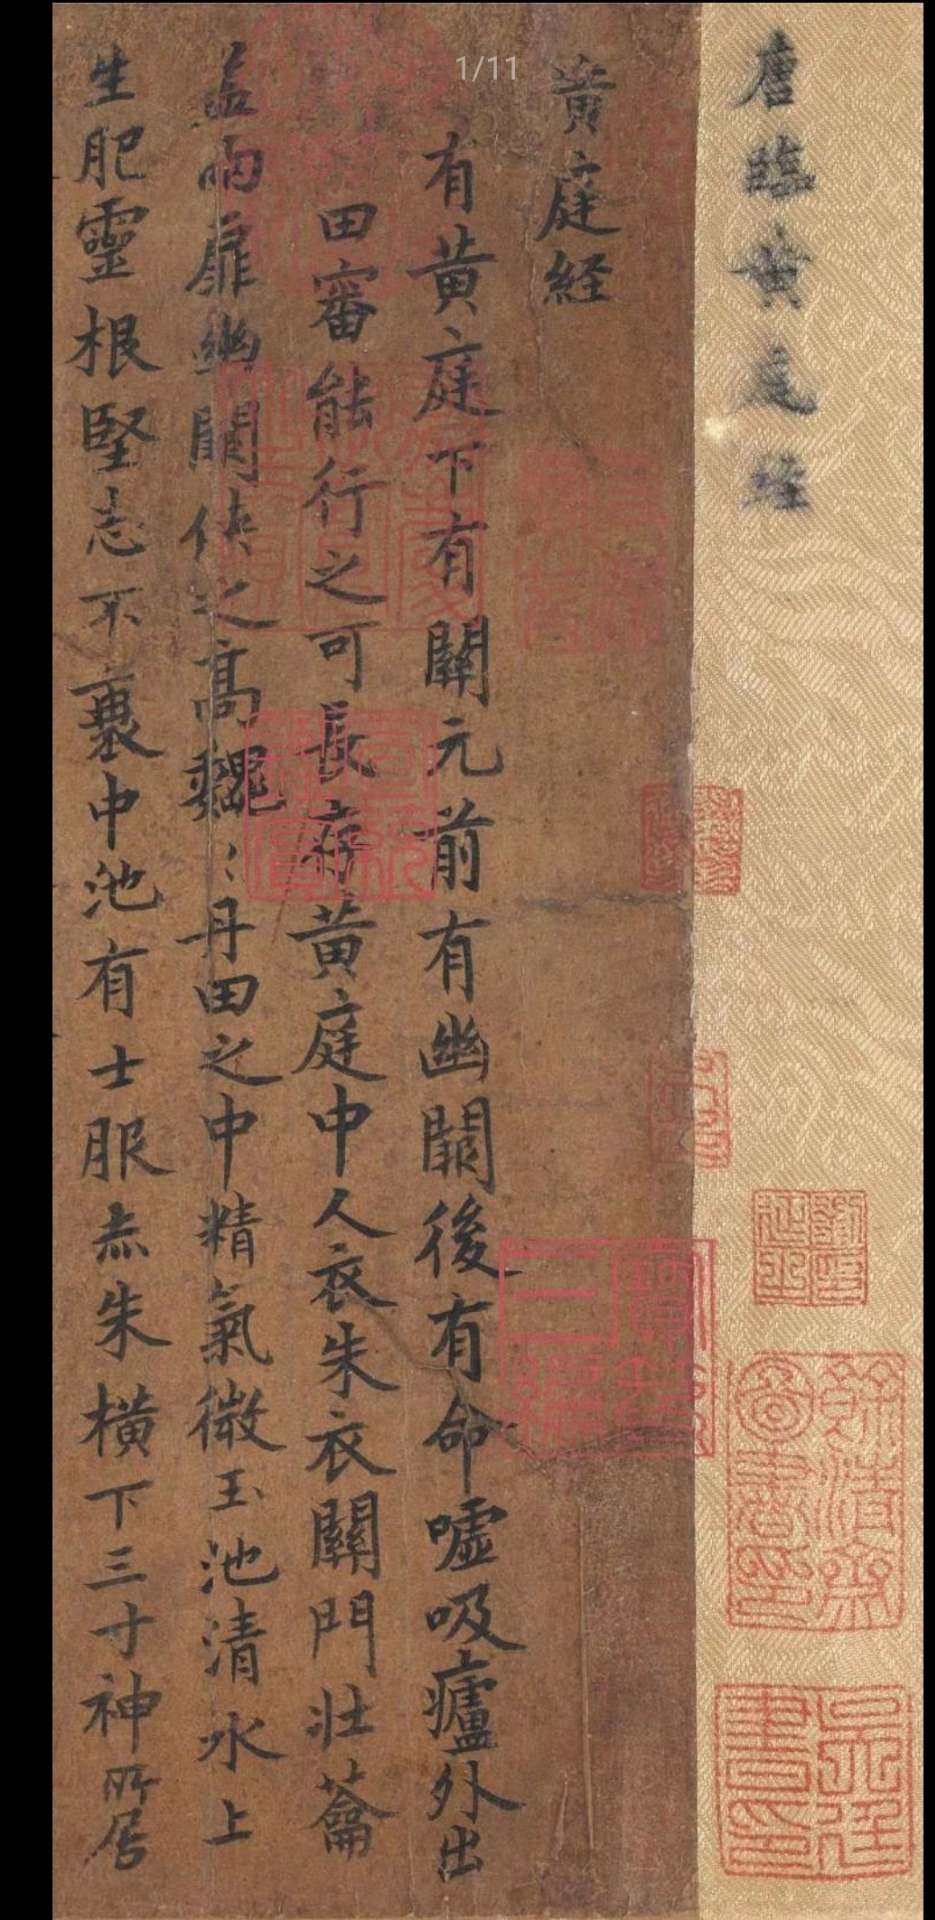 1/11
唐臨黃庭經
黃庭経
有黃庭下有關元前有幽闕後有命噓吸廬外出
田審能行之可長存黃庭中人衣朱衣關門壯蘥
盖兩扉幽闕俠之高魏〻丹田之中精氣微玉池清水上
生肥靈根堅志不衰中池有士服赤朱橫下三寸神所居